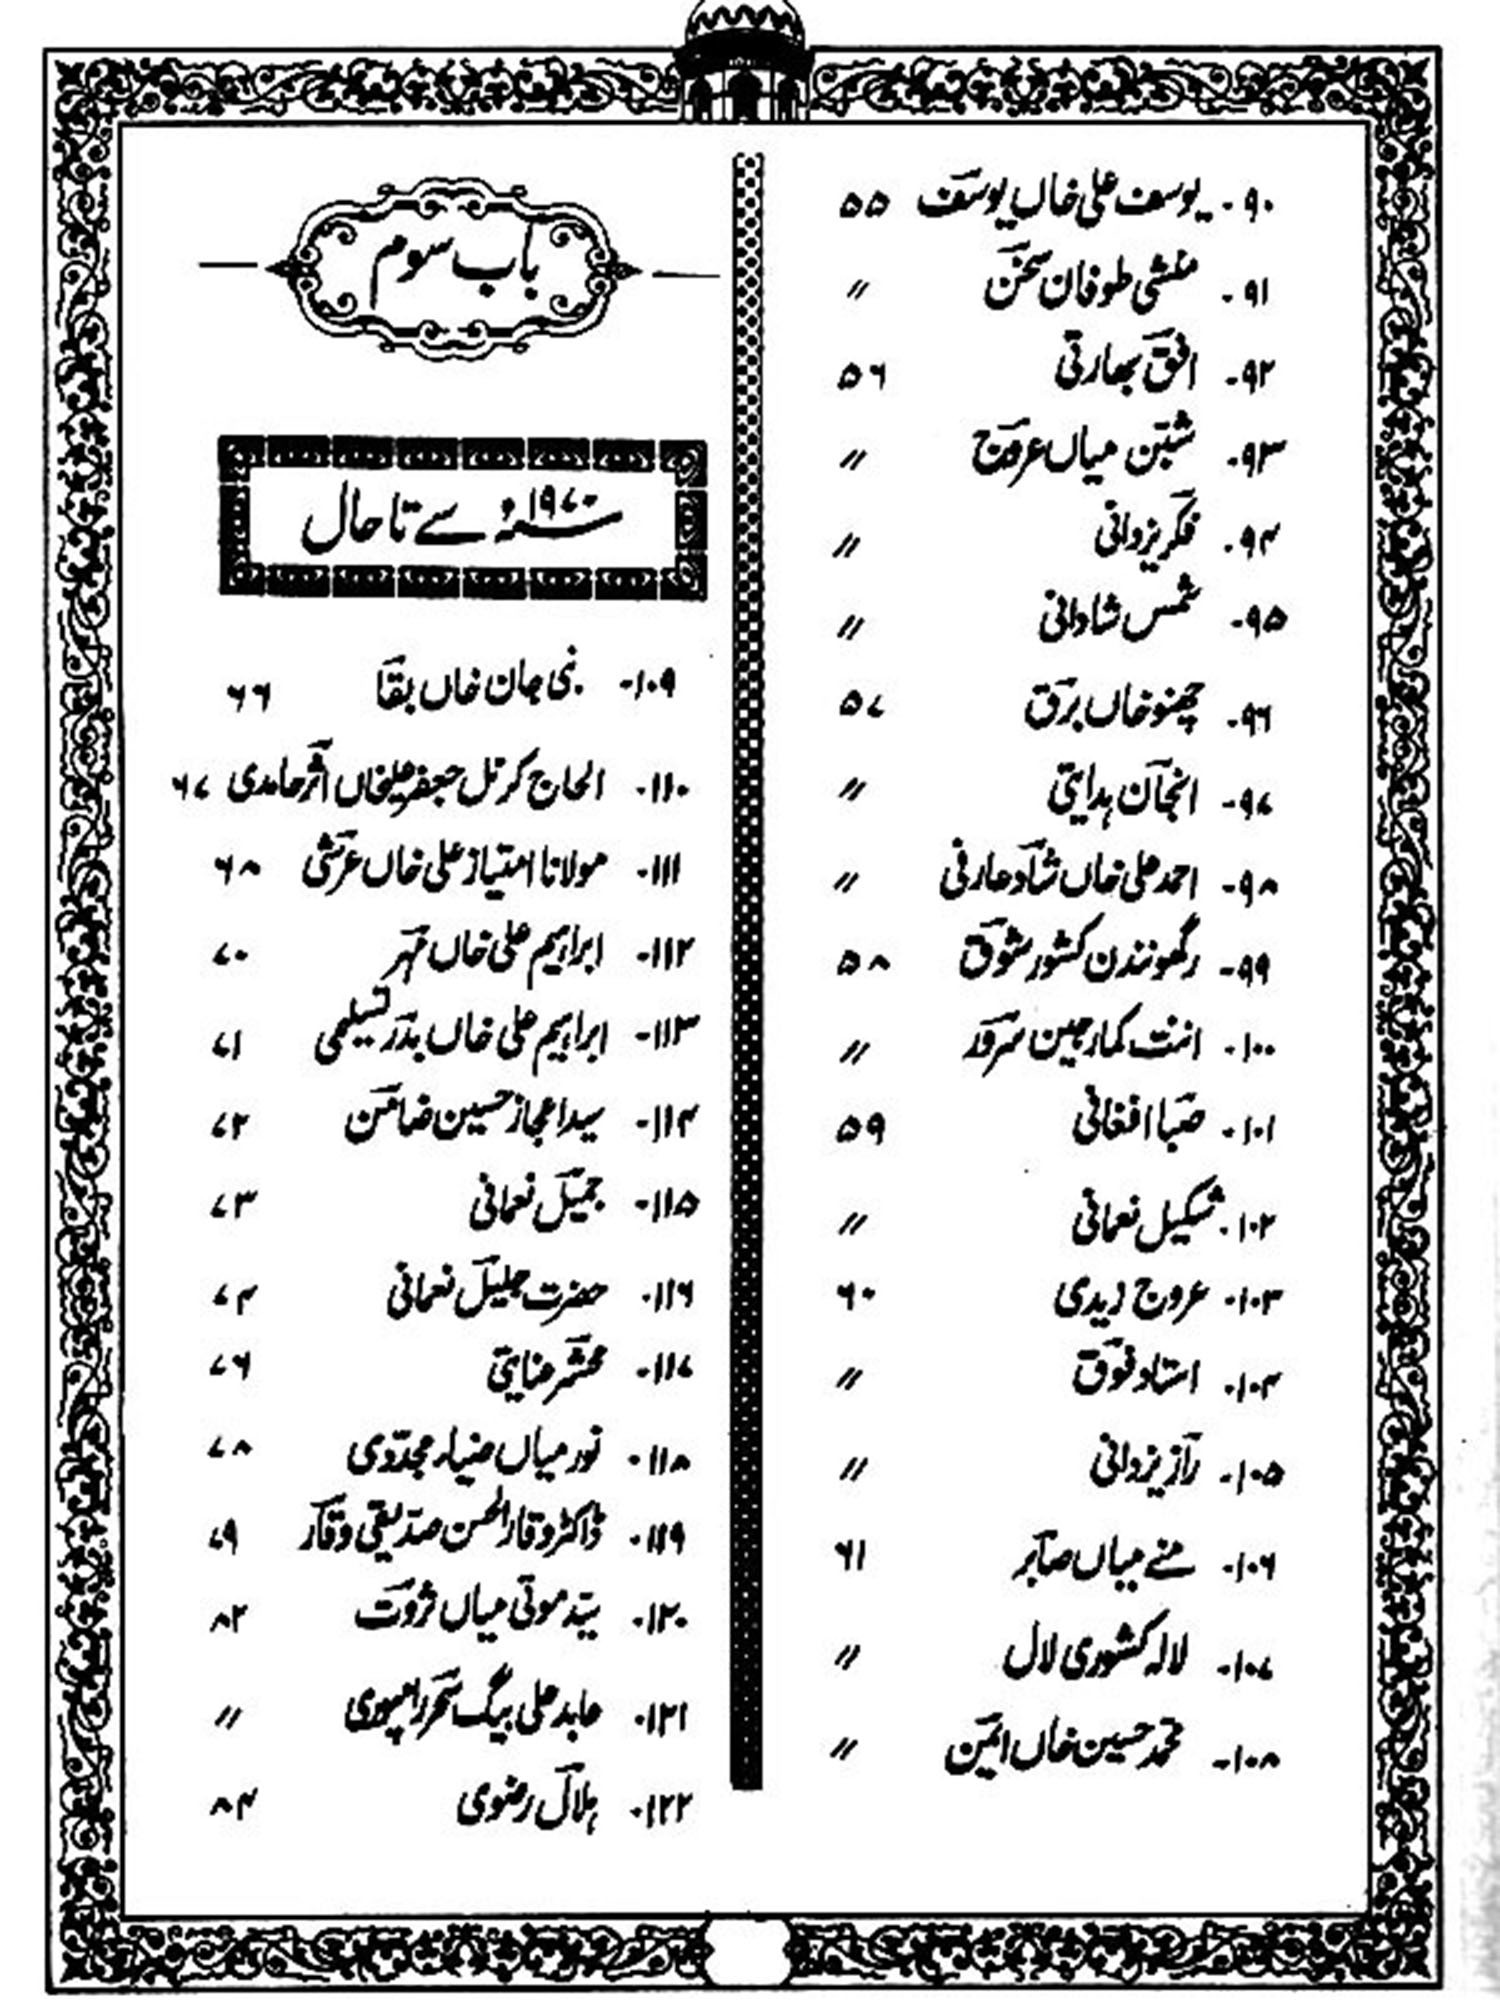 ۹۰۔ یوسف علی خاں یوسف ۵۵
۹۱۔ منشی طوفان سخن 〃
۹۲۔ افق بھارتی ۵۶
۹۳۔ شبن میاں عروج 〃
۹۴۔ فکر یزدانی 〃
۹۵۔ شمس شادانی 〃
۹۶۔ چھنو خاں برق ۵۷
۹۷۔ انجان ہدایتی 〃
۹۸۔ احمد علی خاں شاد عارفی 〃
۹۹۔ رگھونندن کشور شوق ۵۸
۱۰۰۔ اننت کمار جین سرور 〃
۱۰۱۔ صبا افغانی ۵۹
۱۰۲۔ شکیل نعمانی 〃
۱۰۳۔ عروج زیدی ۶۰
۱۰۴۔ استاد فوق 〃
۱۰۵۔ راز یزدانی 〃
۱۰۶۔ منے میاں صابر ۶۱
۱۰۷۔ لالہ کشوری لال 〃
۱۰۸۔ محمد حسین خاں امین 〃
باب سوم
سنہ ۱۹۷۰ء سے تا حال
۱۰۹۔ نبی جان خاں بقا ۶۶
۱۱۰۔ الحاج کرنل جعفر علیخاں اثر حامدی ۶۷
۱۱۱۔ مولانا امتیاز علی خاں عرشی ۶۸
۱۱۲۔ ابراہیم علی خاں مہر ۷۰
۱۱۳۔ ابراہیم علی خاں بدر تسلیمی ۷۱
۱۱۴۔ سید اعجاز حسین ضامن ۷۲
۱۱۵۔ جمیل نعمانی ۷۳
۱۱۶۔ حضرت جلیل نعمانی ۷۴
۱۱۷۔ محشر عنایتی ۷۶
۱۱۸۔ نور میاں ضیاء مجددی ۷۸
۱۱۹۔ ڈاکٹر وقار الحسن صدیقی وقار ۷۹
۱۲۰۔ سید موتی میاں ثروت ۸۲
۱۲۱۔ عابد علی بیگ سحر رامپوری 〃
۱۲۲۔ ہلال رضوی ۸۴